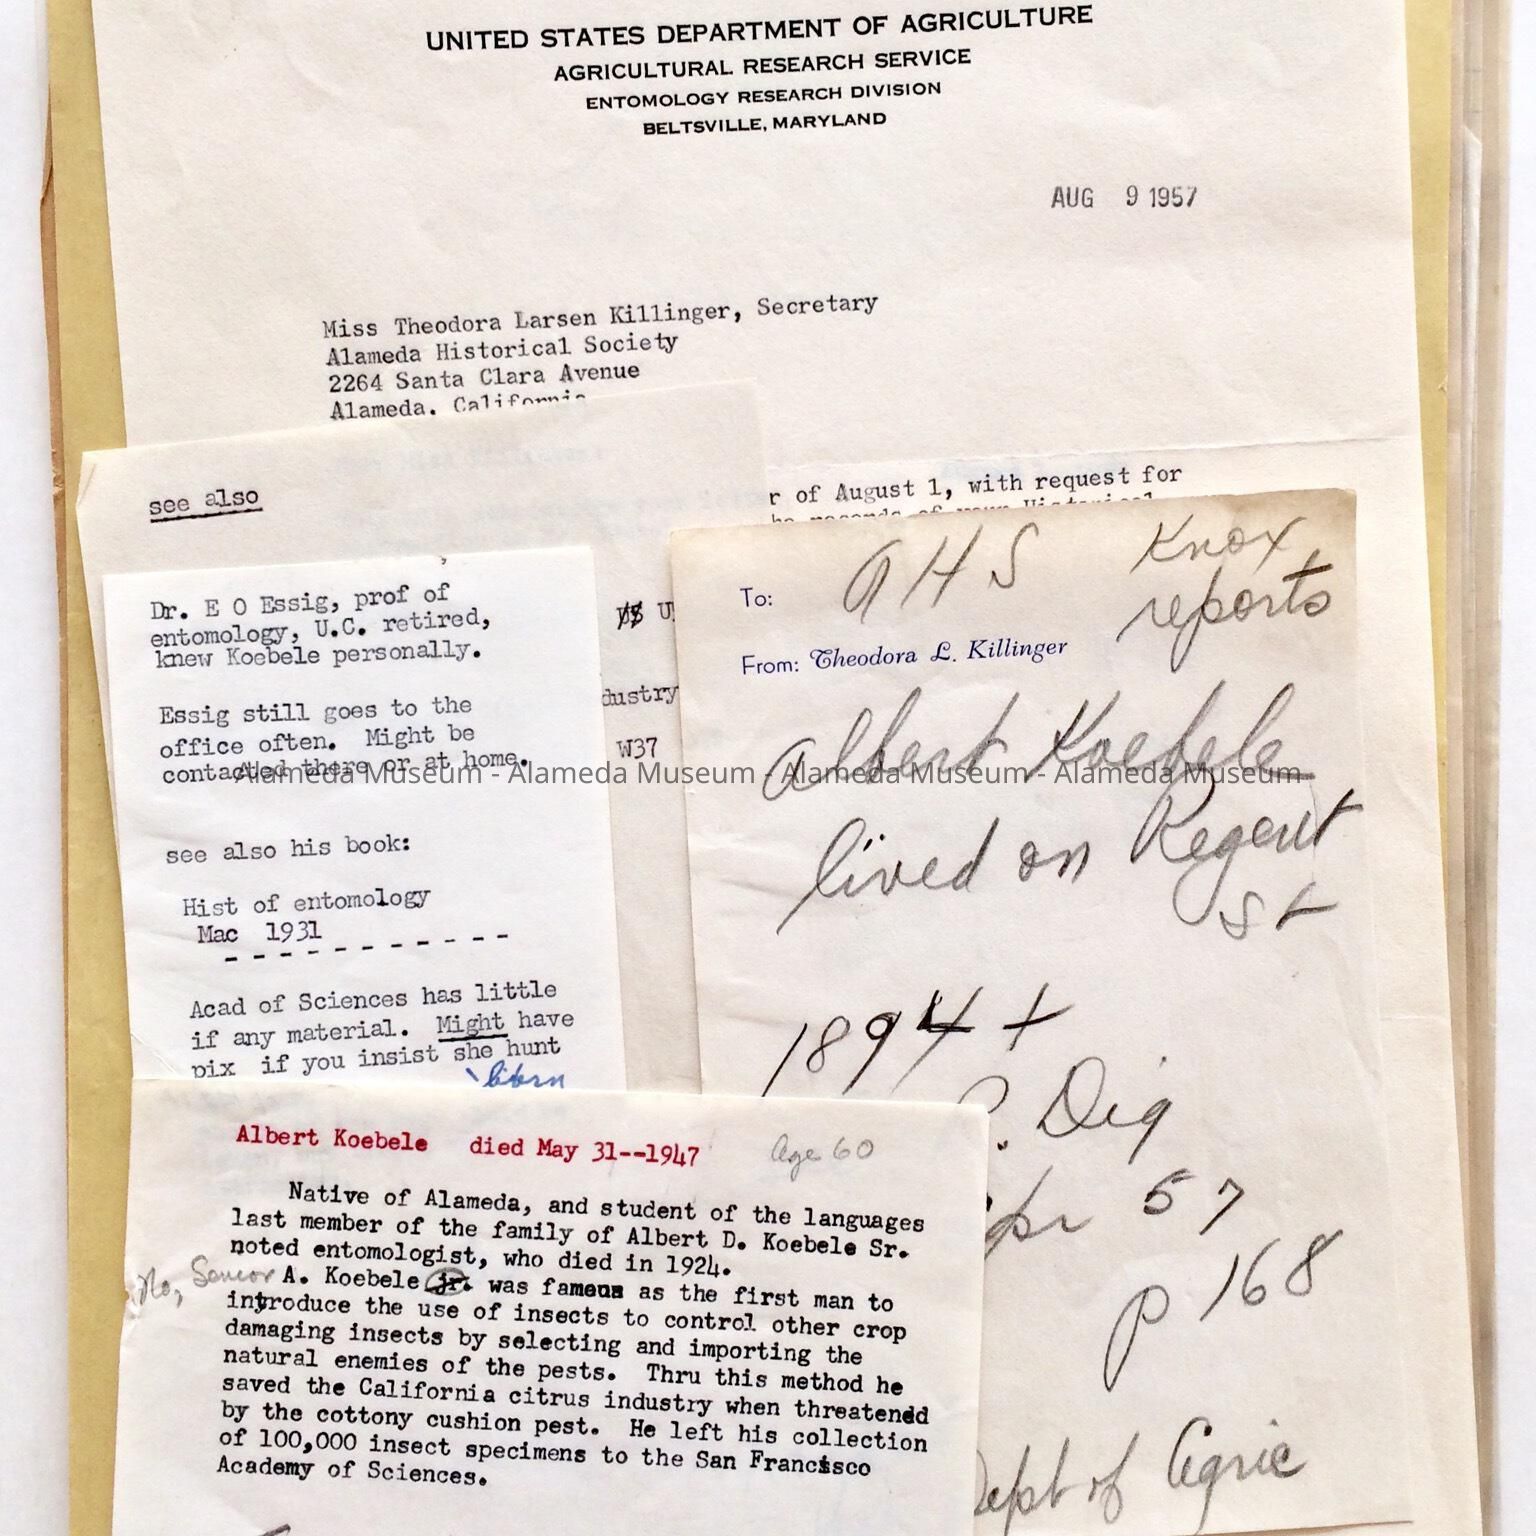 UNITED STATES DEPARTMENT OF AGRICULTURE
AGRICULTURAL RESEARCH SERVICE
ENTOMOLOGY RESEARCH DIVISION
BELTSVILLE, MARYLAND
AUG 9 1957
Miss Theodora Larsen Killinger, Secretary
Alameda Historical Society
2264 Santa Clara Avenue
Alameda. California
r of August 1, with request for
see also
Dr. E O Essig, prof of
entomology, U.C. retired,
knew Koebele personally.
Essig still goes to the
office often. Might be
contacted there or at home.
see also his book:
Hist of entomology
Mac 1931
- - - - - - - - - - -
Acad of Sciences has little
if any material. Might have
pix if you insist she hunt
dustry
W37
To: AHS
Knox
reports
From: Theodora L. Killinger
Albert Koebele
lived on Regent
St
1894 +
. Dig
57
p 168
Dept of Agric
Alameda Museum - Alameda Museum - Alameda Museum - Alameda Museum
Albert Koebele died May 31--1947 Age 60
Native of Alameda, and student of the languages
last member of the family of Albert D. Koebele Sr.
noted entomologist, who died in 1924.
No, Senior A. Koebele jr. was famous as the first man to
introduce the use of insects to control other crop
damaging insects by selecting and importing the
natural enemies of the pests. Thru this method he
saved the California citrus industry when threatened
by the cottony cushion pest. He left his collection
of 100,000 insect specimens to the San Francisco
Academy of Sciences.